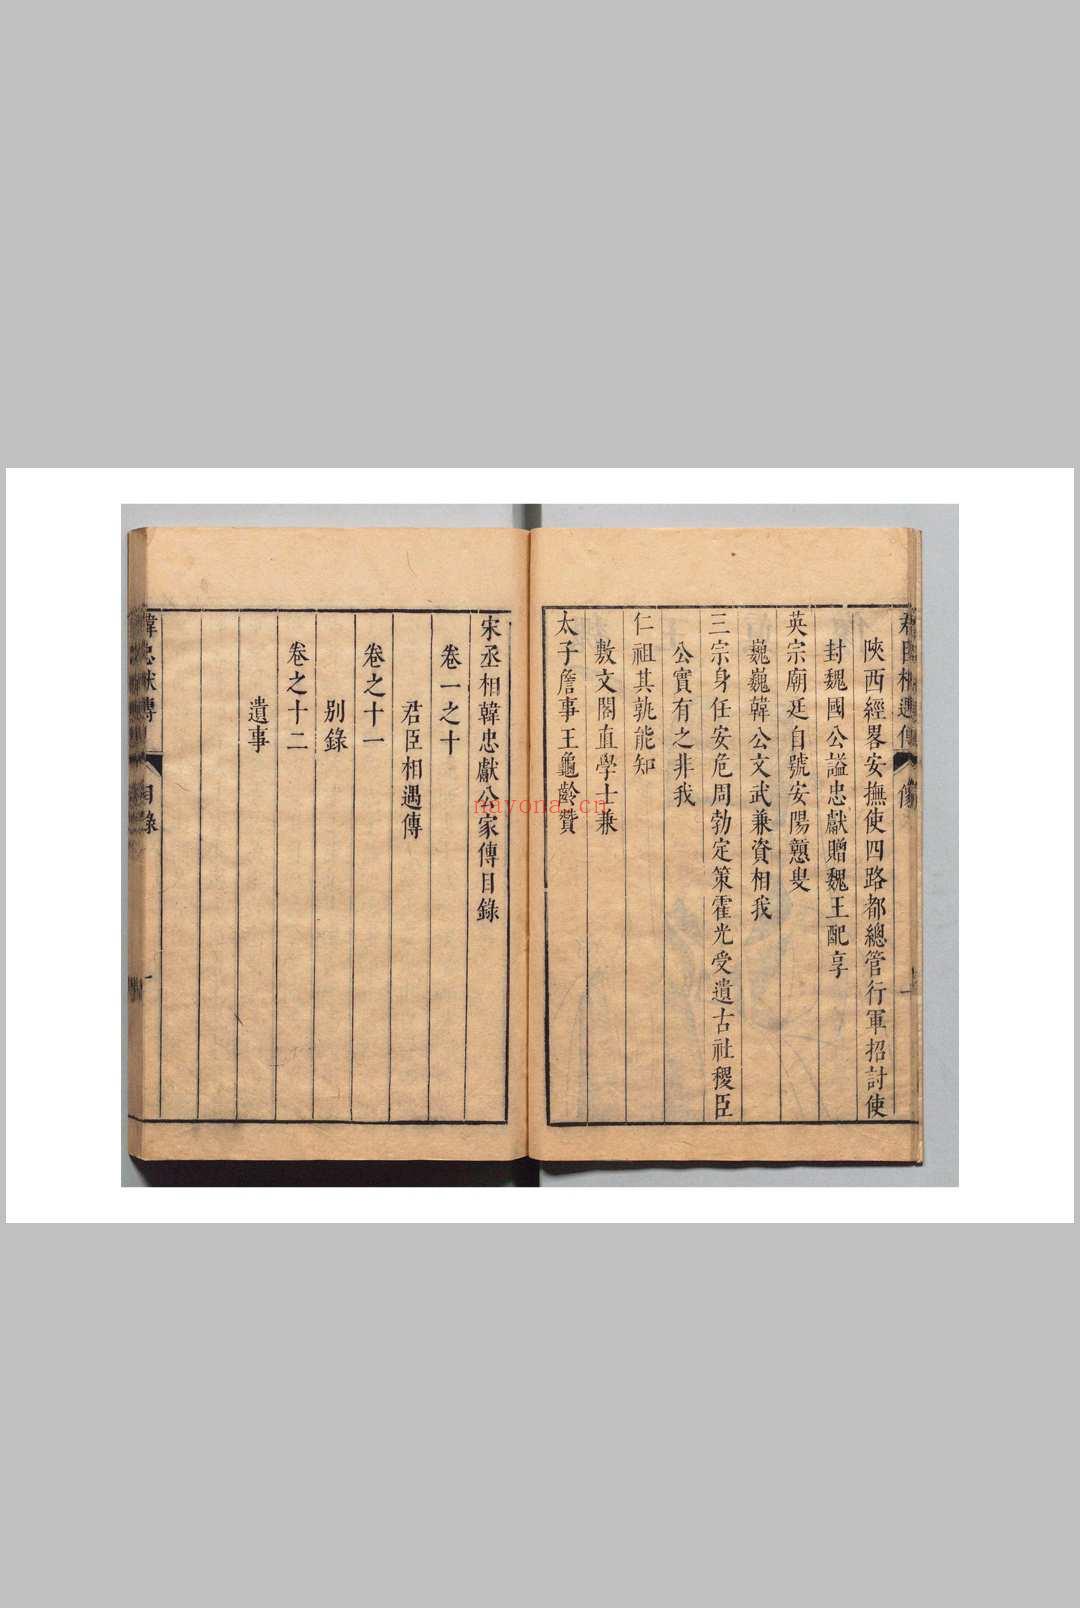 君臣相遇傳
像
一
陝西經畧安撫使四路都總管行軍招討使
封魏國公謚忠獻贈魏王配享
英宗廟廷自號安陽戇叟
巍巍韓公文武兼資相我
三宗身任安危周勃定策霍光受遺古社稷臣
公實有之非我
仁祖其孰能知
敷文閣直學士兼
太子詹事王龜齡贊
宋丞相韓忠獻公家傳目錄
卷一之十
君臣相遇傳
卷之十一
别錄
卷之十二
遺事
韓忠獻傳
目錄
一
nayona.cn